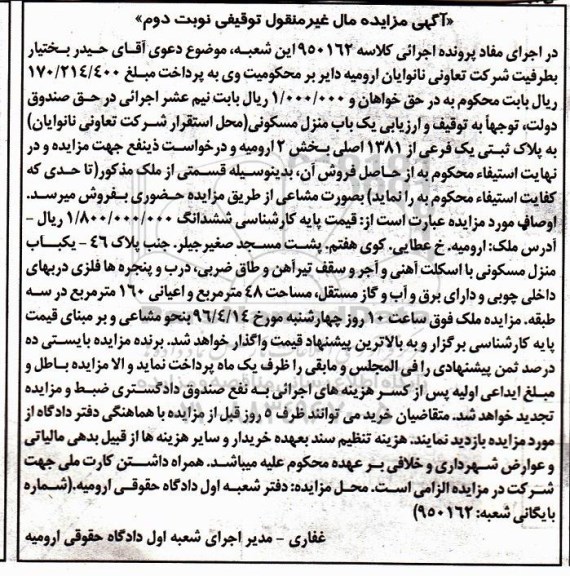 «آگهی مزایده مال غیرمنقول توقیفی نوبت دوم»
در اجرای مفاد پرونده اجرائی کلاسه ۹۵۰۱۶۲ این شعبه، موضوع دعوی آقای حیدر بختیار
بطرفیت شرکت تعاونی نانوایان ارومیه دایر بر محکومیت وی به پرداخت مبلغ ۱۷۰/۲۱۴/۴۰۰
ریال بابت محکوم به در حق خواهان و ۱/۰۰۰/۰۰۰ ریال بابت نیم عشر اجرائی در حق صندوق
دولت، توجهاً به توقیف و ارزیابی یک باب منزل مسکونی(محل استقرار شرکت تعاونی نانوایان)
به پلاک ثبتی یک فرعی از ۱۳۸۱ اصلی بخش ۲ ارومیه و درخواست ذینفع جهت مزایده و در
نهایت استیفاء محکوم به از حاصل فروش آن، بدینوسیله قسمتی از ملک مذکور( تا حدی که
کفایت استیفاء محکوم به را نماید) بصورت مشاعی از طریق مزایده حضوری بفروش میرسد.
اوصاف مورد مزایده عبارت است از: قیمت پایه کارشناسی ششدانگ ۱/۸۰۰/۰۰۰/۰۰۰ ریال -
آدرس ملک: ارومیه. خ عطایی. کوی هفتم. پشت مسجد صغیرجیلر. جنب پلاک ۴۶ - یکباب
منزل مسکونی با اسکلت آهنی و آجر و سقف تیرآهن و طاق ضربی، درب و پنجره ها فلزی دربهای
داخلی چوبی و دارای برق و آب و گاز مستقل، مساحت ۴۸ مترمربع و اعیانی ۱۶۰ مترمربع در سه
طبقه. مزایده ملک فوق ساعت ۱۰ روز چهارشنبه مورخ ۹۶/۴/۱۴ بنحو مشاعی و بر مبنای قیمت
پایه کارشناسی برگزار و به بالاترین پیشنهاد قیمت واگذار خواهد شد. برنده مزایده بایستی ده
درصد ثمن پیشنهادی را فی المجلس و مابقی را ظرف یک ماه پرداخت نماید و الا مزایده باطل و
مبلغ ایداعی اولیه پس از کسر هزینه های اجرائی به نفع صندوق دادگستری ضبط و مزایده
تجدید خواهد شد. متقاضیان خرید می توانند ظرف ۵ روز قبل از مزایده با هماهنگی دفتر دادگاه از
مورد مزایده بازدید نمایند. هزینه تنظیم سند بعهده خریدار و سایر هزینه ها از قبیل بدهی مالیاتی
و عوارض شهرداری و خلافی بر عهده محکوم علیه میباشد. همراه داشتن کارت ملی جهت
شرکت در مزایده الزامی است. محل مزایده: دفتر شعبه اول دادگاه حقوقی ارومیه.(شماره
بایگانی شعبه: ۹۵۰۱۶۲)
غفاری - مدیر اجرای شعبه اول دادگاه حقوقی ارومیه